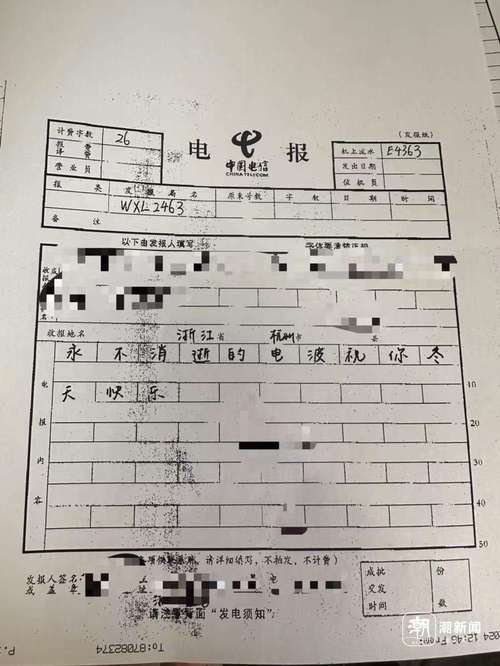 (发报纸)
计费字数 26
报费
译费
营业员
电 报
中国电信
CHINA TELECOM
机上流水 E4363
发出日期
值机员
报类 发报局名 原来号数 字数 日期 时间
WXL2463
备注
以下由发报人填写
收报地名 浙江省 杭州市 县
永不消逝的电波祝你冬
天快乐
10
20
30
40
50
电报内容
请详细填写,不拍发,不计费)
发报人签名: 电
或盖章
请 背面“发电须知”
成批 份
交发
时间 数
潮新闻
P. To:87082374 024 12:46 From: